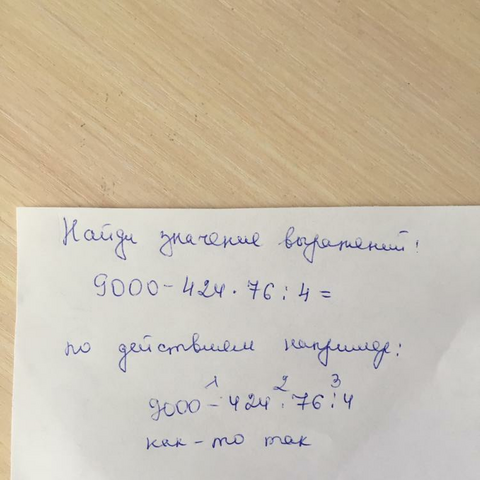 Найди значение выражений!
9000-424·76:4=
по действием например:
1 2 3
9000-424·76:4
как-то так